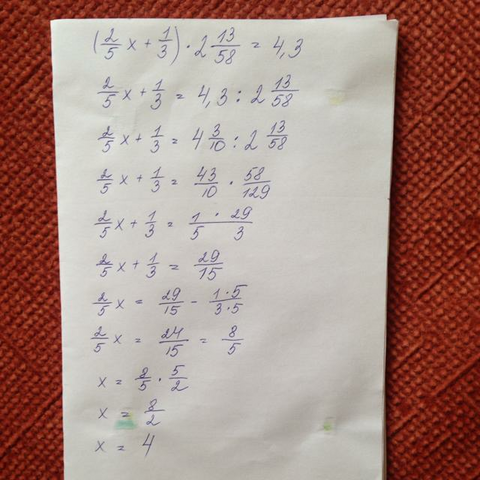 (2/5 x + 1/3) · 2 13/58 = 4,3
2/5 x + 1/3 = 4,3 : 2 13/58
2/5 x + 1/3 = 4 3/10 : 2 13/58
2/5 x + 1/3 = 43/10 · 58/129
2/5 x + 1/3 = (1 · 29)/(5   3)
2/5 x + 1/3 = 29/15
2/5 x = 29/15 - (1·5)/(3·5)
2/5 x = 24/15 = 8/5
x = 8/5 · 5/2
x = 8/2
x = 4